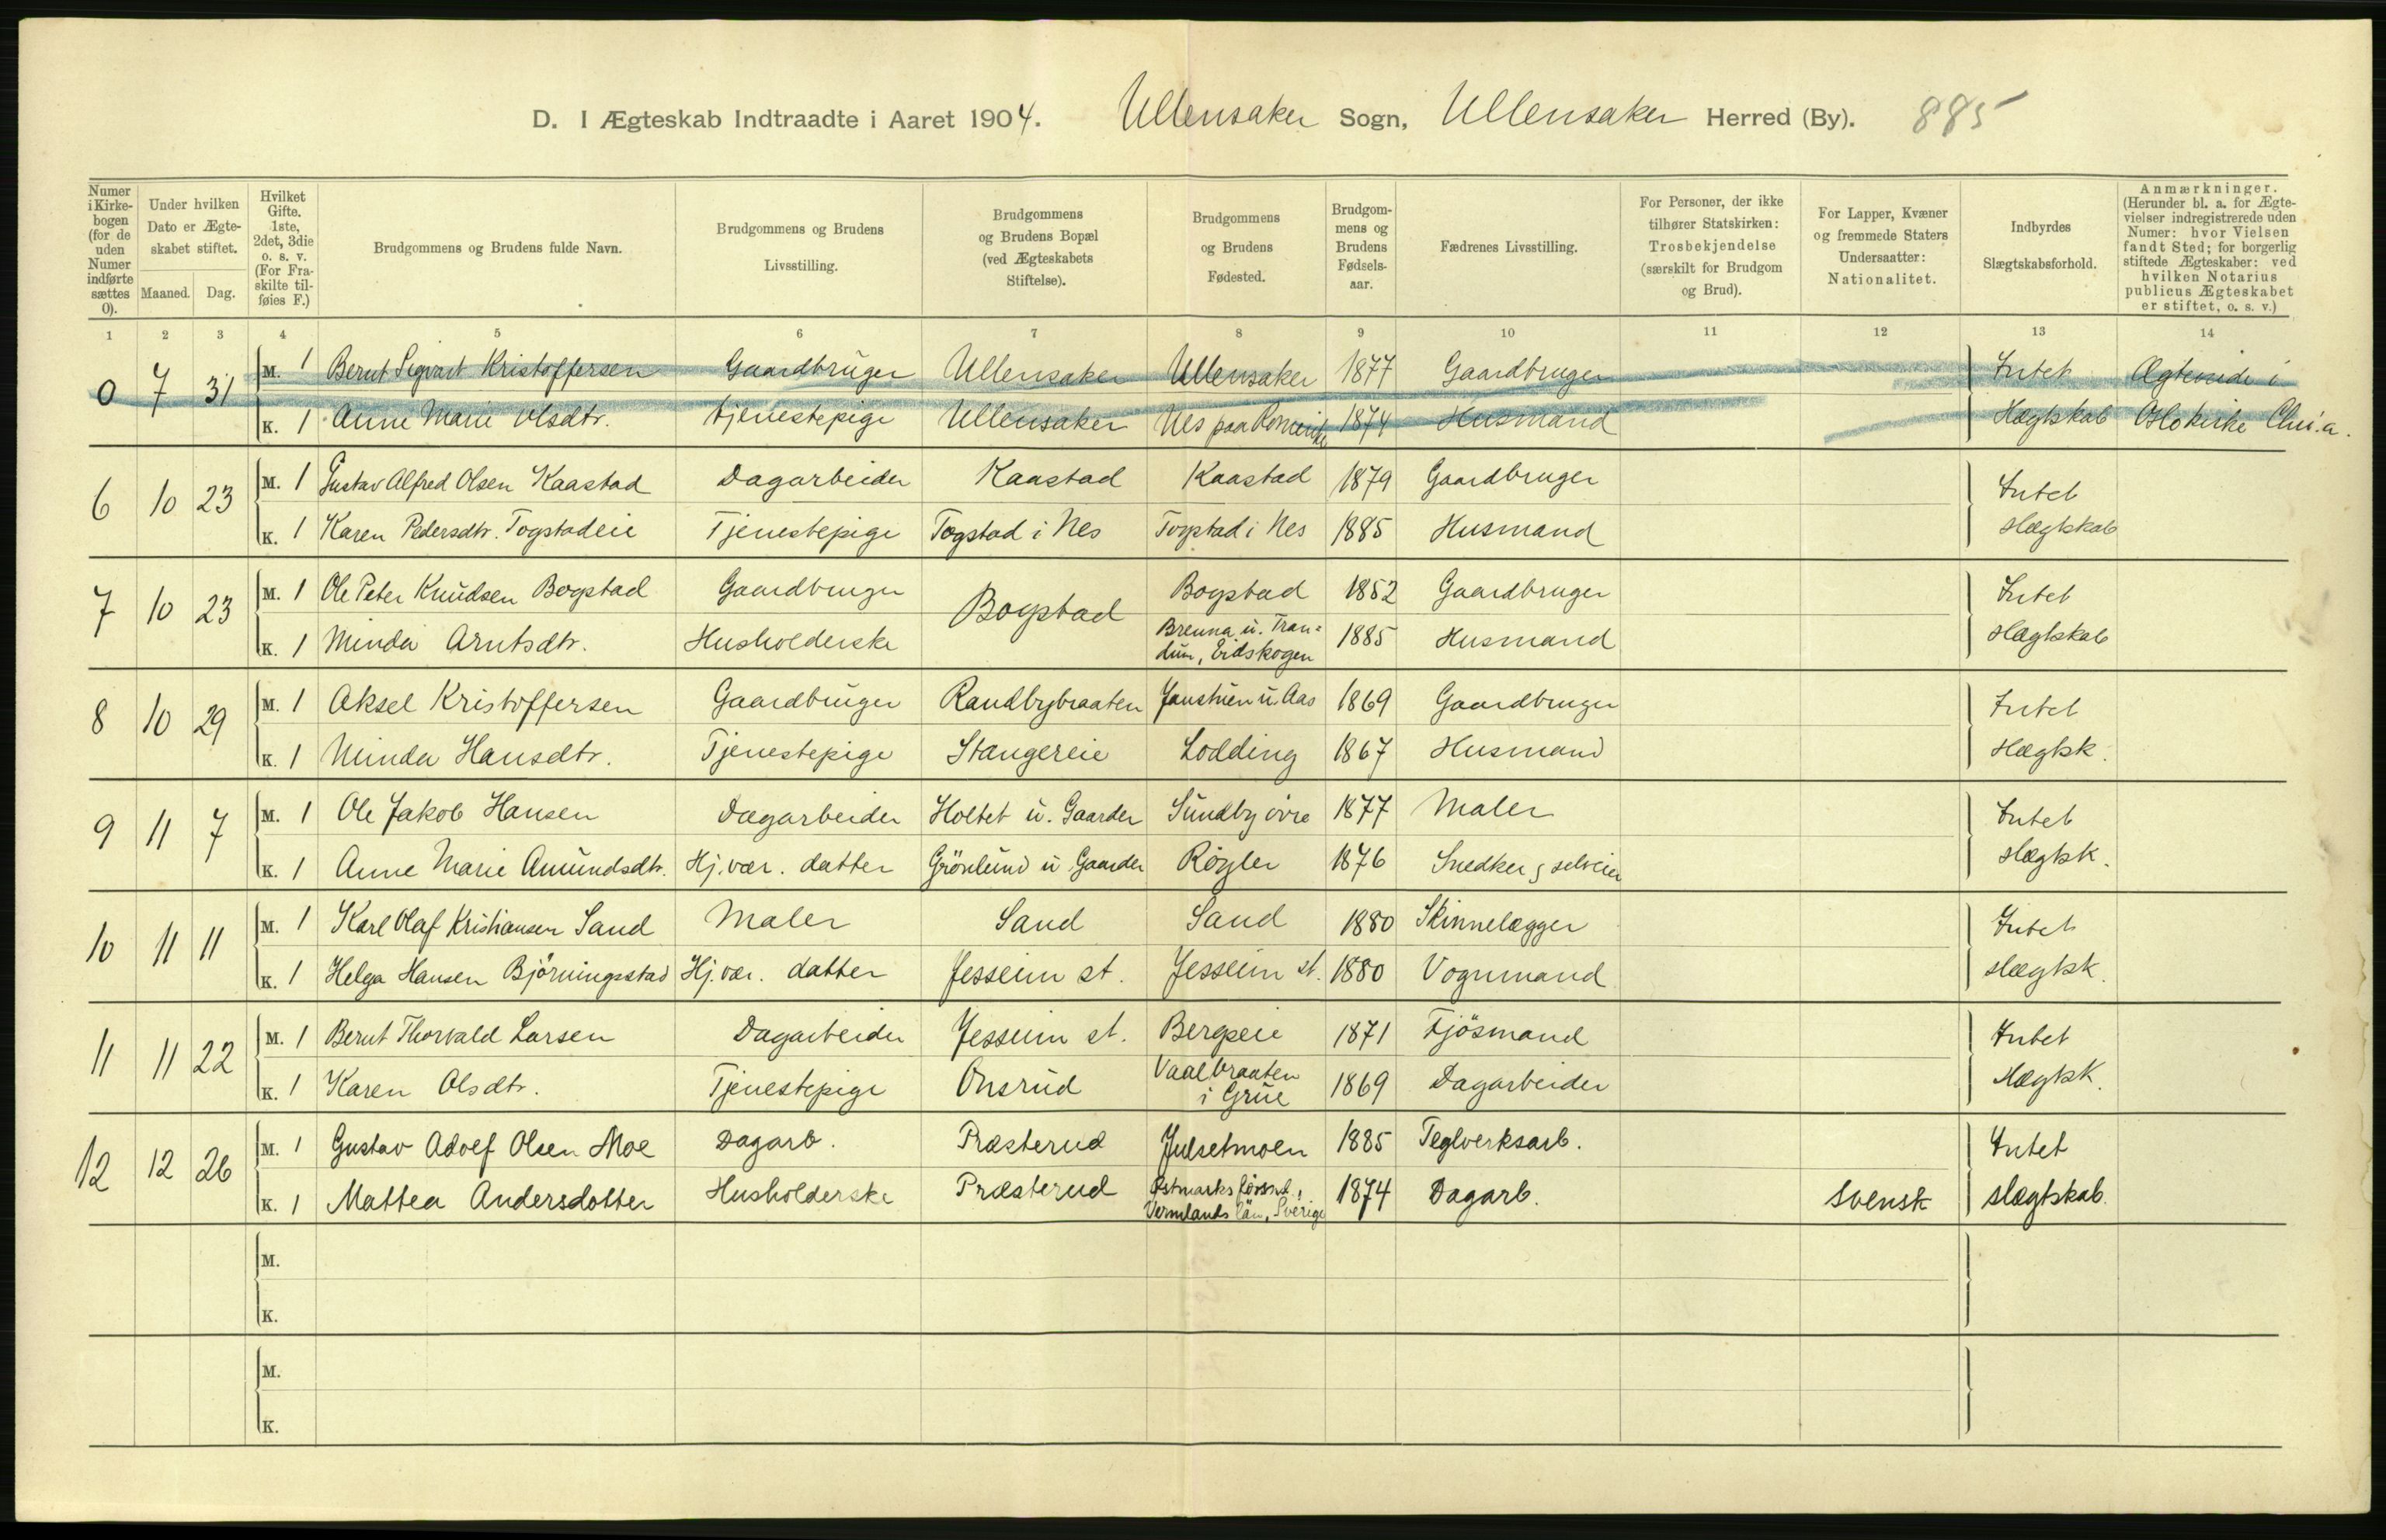 D. I Ægteskab Indtraadte i Aaret 1904. Ullensaker Sogn, Ullensaker Herred (By). 885
Numer i Kirkebogen (for de uden Numer indførte sættes 0). Under hvilken Dato er Ægteskabet stiftet. Maaned. Dag. Hvilket Gifte. 1ste, 2det, 3die o. s. v. (For Fraskilte tilføies F.) Brudgommens og Brudens fulde Navn. Brudgommens og Brudens Livsstilling. Brudgommens og Brudens Bopæl (ved Ægteskabets Stiftelse). Brudgommens og Brudens Fødested. Brudgommens og Brudens Fødselsaar. Fædrenes Livsstilling. For Personer, der ikke tilhører Statskirken: Trosbekjendelse (særskilt for Brudgom og Brud). For Lapper, Kvæner og fremmede Staters Undersaatter: Nationalitet. Indbyrdes Slægtskabsforhold. Anmærkninger. (Herunder bl. a. for Ægtevielser indregistrerede uden Numer: hvor Vielsen fandt Sted; for borgerlig stiftede Ægteskaber: ved hvilken Notarius publicus Ægteskabet er stiftet, o. s. v.)
1 2 3 4 5 6 7 8 9 10 11 12 13 14
0 7 31 M. 1 Bernt Sigvart Kristoffersen Gaardbruger Ullensaker Ullensaker 1877 Gaardbruger Intet Ægteviede i
K. 1 Anne Marie Olsdtr. Tjenestepige Ullensaker Nes paa Romerike 1874 Husmand Slægtskab Oslo kirke Chri.a.
6 10 23 M. 1 Gustav Alfred Olsen Kaastad Dagarbeider Kaastad Kaastad 1879 Gaardbruger Intet
K. 1 Karen Pedersdtr. Togstadeie Tjenestepige Togstad i Nes Togstad i Nes 1885 Husmand Slægtskab
7 10 23 M. 1 Ole Peter Knudsen Bogstad Gaardbruger Bogstad Bogstad 1852 Gaardbruger Intet
K. 1 Minda Arntsdtr. Husholderske Brenna u. Tran= dum, Eidskogen 1885 Husmand Slægtskab
8 10 29 M. 1 Aksel Kristoffersen Gaardbruger Randbybraaten u. Aas 1869 Gaardbruger Intet
K. 1 Minda Hansdtr. Tjenestepige Stangereie Lodding 1867 Husmand Slægtsk.
9 11 7 M. 1 Ole Jakob Hansen Dagarbeider Holtet u. Gaarder Sundby övre 1877 Maler Intet
K. 1 Anne Marie Amundsdtr. Hj. vær. datter Grönlund u Gaarder Rögler 1876 Snedker & selveier Slægtsk.
10 11 11 M. 1 Karl Olaf Kristiansen Sand Maler Sand Sand 1880 Skinnelægger Intet
K. 1 Helga Hansen Björningsstad Hj. vær. datter Jesseim st. Jesseim st. 1880 Vognmand Slægtsk.
11 11 22 M. 1 Bernt Thorvald Larsen Dagarbeider Jesseim st. Bergeie 1871 Fjösmand Intet
K. 1 Karen Olsdtr. Tjenestepige Onsrud Vaalbraaten i Grue 1869 Dagarbeider Slægtsk.
12 12 26 M. 1 Gustav Adolf Olsen Moe Dagarb. Præsterud Julsetmoen 1885 Teglverksarb. Intet
K. 1 Mattea Andersdotter Husholderske Præsterud Østmarks förs., Vermlands län, Sverige 1874 Dagarb. Svensk Slægtskab.
M.
K.
M.
K.